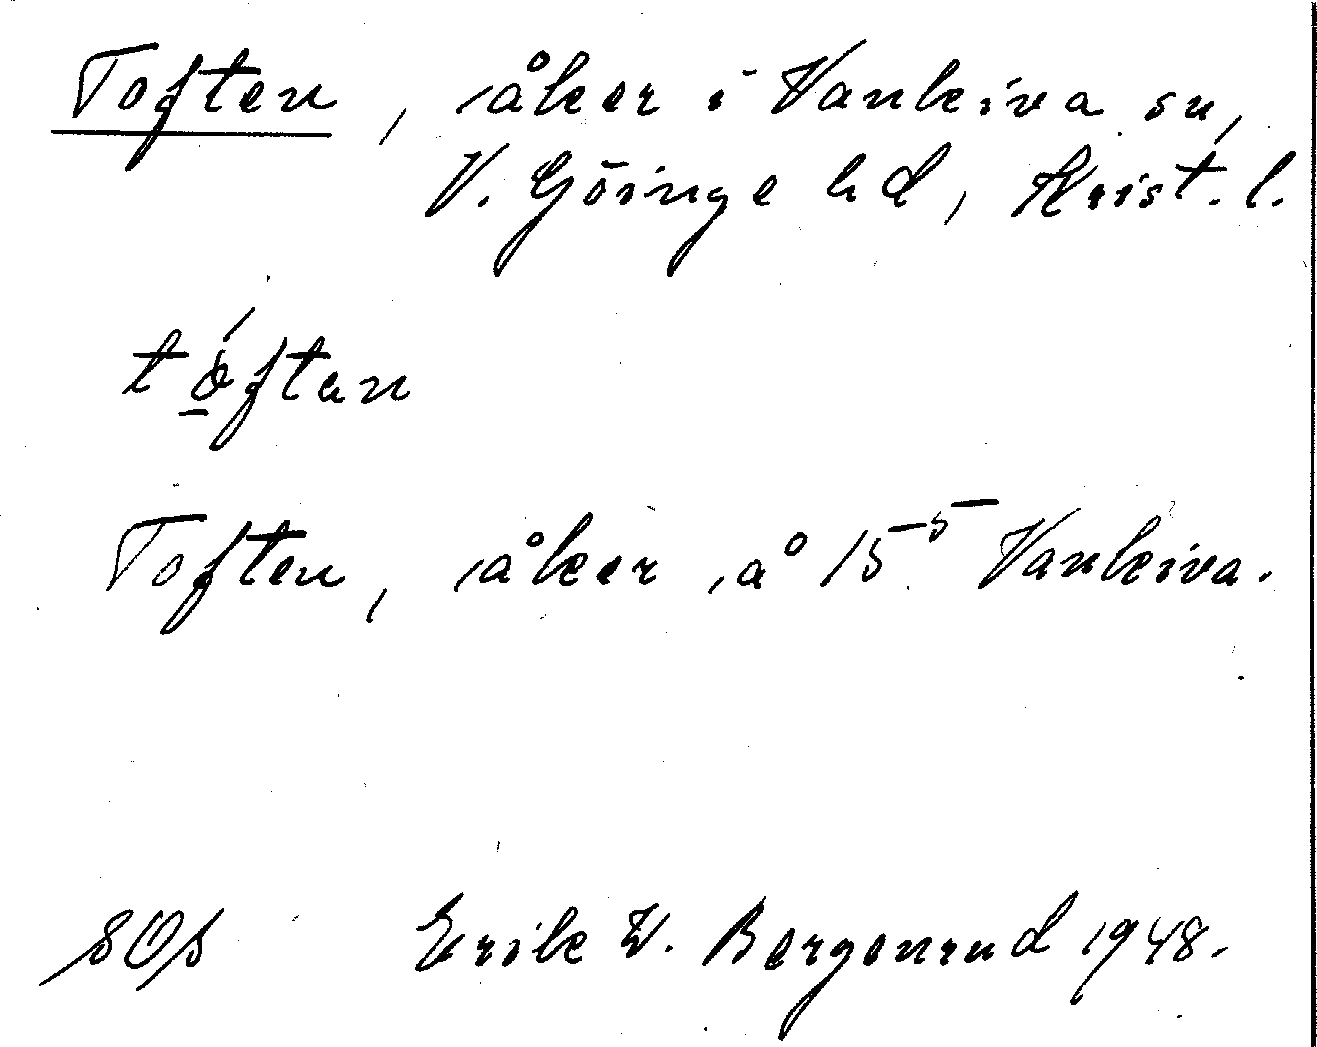 Toften, åker i Vankiva sn,
V. Göinge hd, Krist. l.
tóftan
Toften, åker å 15⁵ Vankiva.
Erik W. Bergenrud 1948.